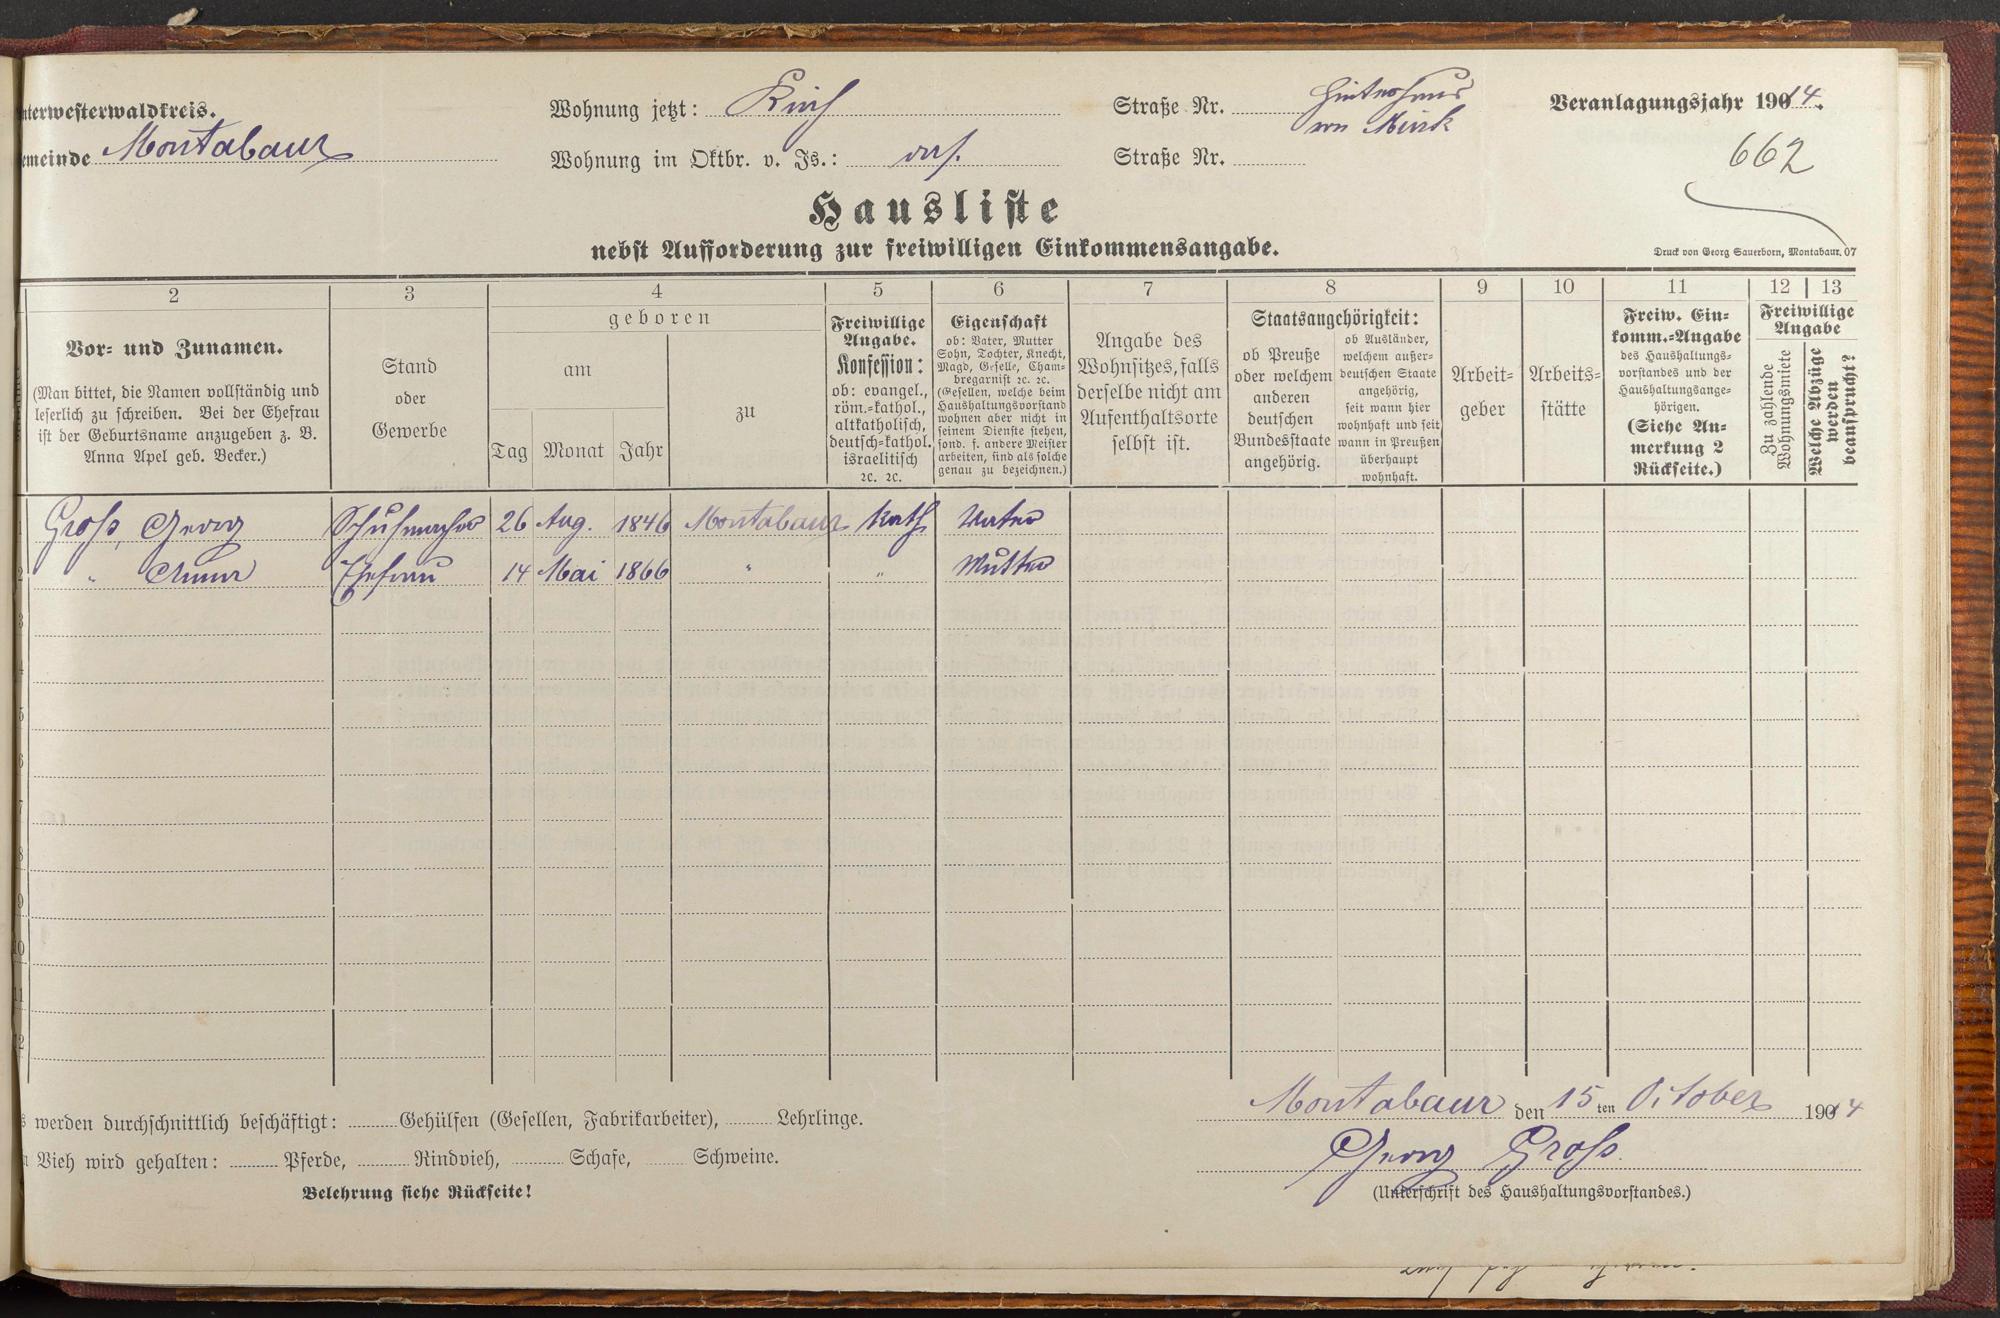 nterwesterwaldkreis.
emeinde Montabaur
Wohnung jetzt: Kirch
Straße Nr. Hinterhaus
von
Wohnung im Oktbr. v. Js.: das.
Straße Nr.
Veranlagungsjahr 1914.
662
Hausliste
nebst Aufforderung zur freiwilligen Einkommensangabe.
Druck von Georg Sauerborn, Montabaur. 07
2 3 4 5 6 7 8 9 10 11 12 13
Vor- und Zunamen.
(Man bittet, die Namen vollständig und
leserlich zu schreiben. Bei der Ehefrau
ist der Geburtsname anzugeben z. B.
Anna Apel geb. Becker.)
Stand
oder
Gewerbe
geboren
am
Tag Monat Jahr
zu
Freiwillige
Angabe.
Konfession:
ob: evangel.,
röm.-kathol.,
altkatholisch,
deutsch-kathol.
israelitisch
ꝛc. ꝛc.
Eigenschaft
ob: Vater, Mutter
Sohn, Tochter, Knecht,
Magd, Geselle, Cham-
bregarnist ꝛc. ꝛc.
(Gesellen, welche beim
Haushaltungsvorstand
wohnen aber nicht in
seinem Dienste stehen,
sond. f. andere Meister
arbeiten, sind als solche
genau zu bezeichnen.)
Angabe des
Wohnsitzes, falls
derselbe nicht am
Aufenthaltsorte
selbst ist.
Staatsangehörigkeit:
ob Preuße
oder welchem
anderen
deutschen
Bundesstaate
angehörig.
ob Ausländer,
welchem außer-
deutschen Staate
angehörig,
seit wann hier
wohnhaft und seit
wann in Preußen
überhaupt
wohnhaft.
Arbeit-
geber
Arbeits-
stätte
Freiw. Ein-
komm.-Angabe
des Haushaltungs-
vorstandes und der
Haushaltungsange-
hörigen.
(Siehe An-
merkung 2
Rückseite.)
Freiwillige
Angabe
Zu zahlende
Wohnungsmiete
Welche Abzüge
werden
beansprucht?
1 Groß, Georg Schuhmacher 26 Aug. 1846 Montabaur Kath Vater
2 " Anna Ehefrau 14 Mai 1866 " " Mutter
3
4
5
6
7
8
9
10
11
12
s werden durchschnittlich beschäftigt: Gehülfen (Gesellen, Fabrikarbeiter), Lehrlinge.
n Vieh wird gehalten: Pferde, Rindvieh, Schafe, Schweine.
Belehrung siehe Rückseite!
Montabaur den 15 ten October 1914
Georg Groß
(Unterschrift des Haushaltungsvorstandes.)